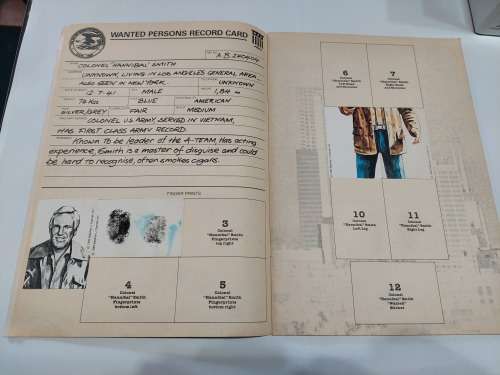 WANTED PERSONS RECORD CARD
COLONEL 'HANNIBAL' SMITH
UNKNOWN, LIVING IN LOS ANGELES GENERAL AREA
ALSO SEEN IN NEW YORK UNKNOWN
12·7·41 MALE 1,84 m
76 KG BLUE AMERICAN
SILVER/GREY FAIR MEDIUM
COLONEL U.S. ARMY, SERVED IN VIETNAM,
HAS FIRST CLASS ARMY RECORD
Known to be leader of the A-TEAM, has acting
experience, Smith is a master of disguise and could
be hard to recognise, often smokes cigars.
FINGER PRINTS
3
Colonel
"Hannibal" Smith
Fingerprints
top right
4
Colonel
"Hannibal" Smith
Fingerprints
bottom left
5
Colonel
"Hannibal" Smith
Fingerprints
bottom right
6
Colonel
"Hannibal" Smith
7
Colonel
"Hannibal" Smith
10
Colonel
"Hannibal" Smith
Left Leg
11
Colonel
"Hannibal" Smith
Right Leg
12
Colonel
"Hannibal"
Smith
"Wanted"
Sticker